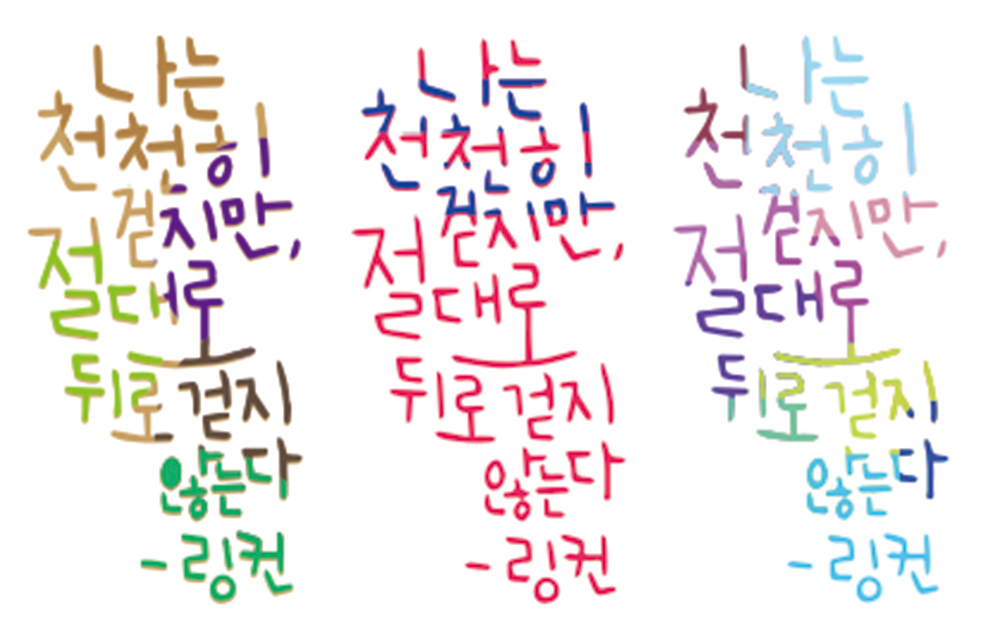 나는
천천히
걷지만,
절대로
뒤로 걷지
않는다
-링컨
나는
천천히
걷지만,
절대로
뒤로 걷지
않는다
-링컨
나는
천천히
걷지만,
절대로
뒤로 걷지
않는다
-링컨